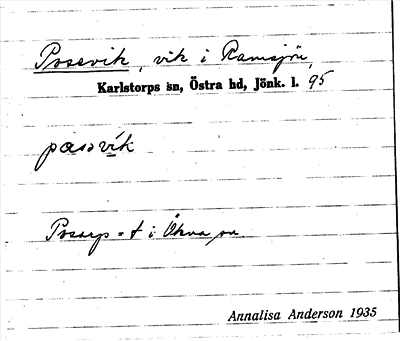 Possvik, vik i Ramsjön,
Karlstorps sn, Östra hd, Jönk. l. 95
påssvik
Posarp = t i Ökna sn
Annalisa Anderson 1935